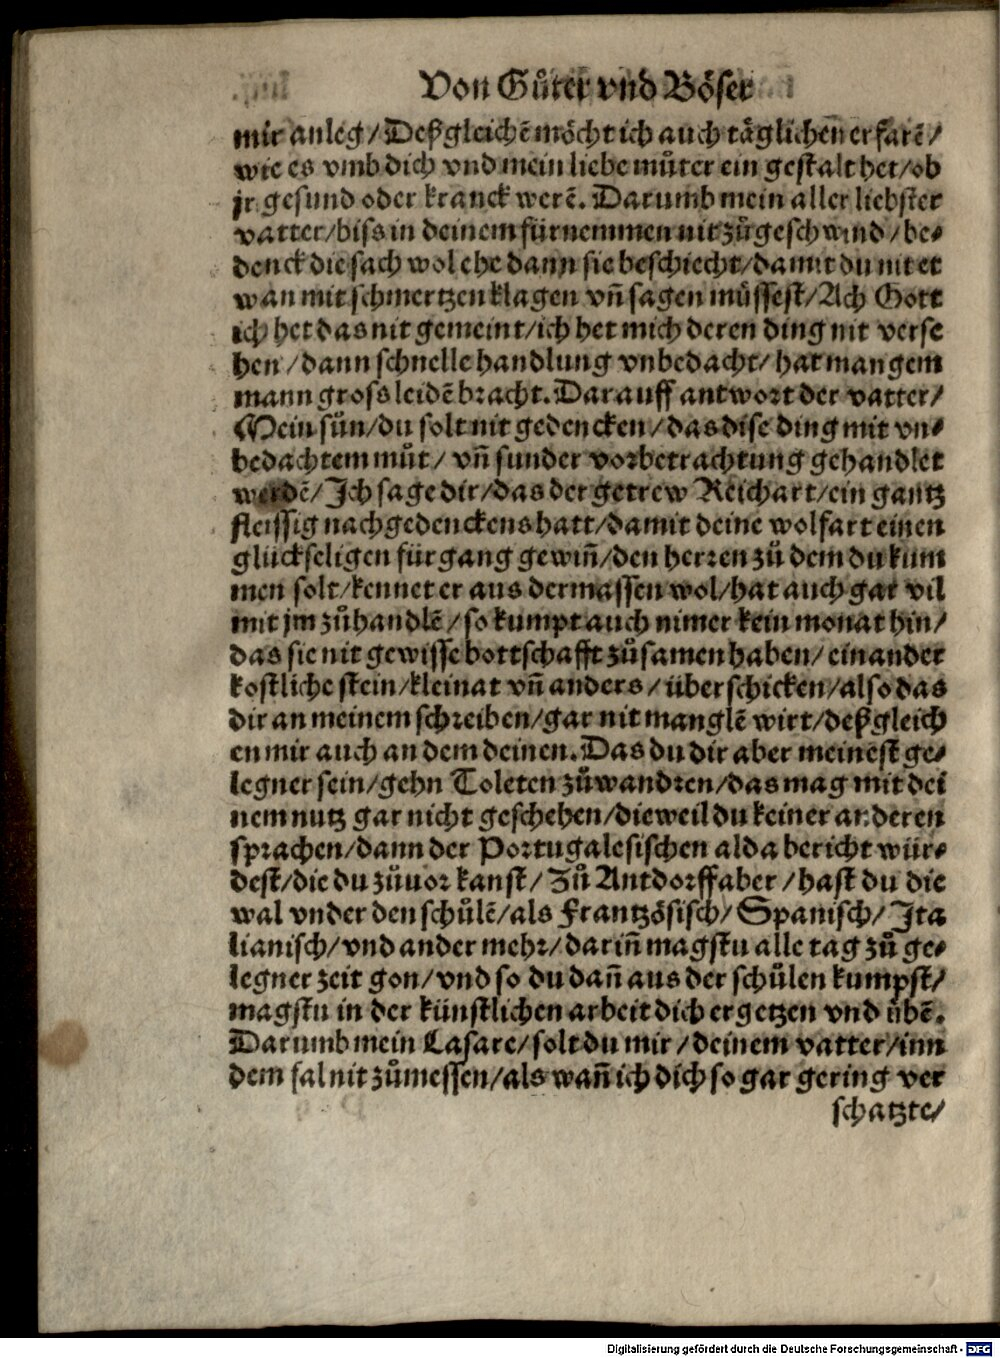 Von Gůter vnd Böser
mir anleg/Deßgleichẽ möcht ich auch täglichen erfarẽ/
wie es vmb dich vnd mein liebe můter ein gestalt het/ob
jr gesund oder kranck werẽ. Darumb mein aller liebster
vatter/biss in deinem fürnemmen nit zů geschwind/be-
denck die sach wol ehe dann sie beschiecht/damit du nit et
wan mit schmertzen klagen vñ sagen müssest/Ach Gott
ich het das nit gemeint/ich het mich deren ding nit verse
hen/dann schnelle handlung vnbedacht/hat mangem
mann gross leidẽ bracht. Darauff antwort der vatter/
Mein sůn/du solt nit gedencken/das dise ding mit vn-
bedachtem můt/ vñ sunder vorbetrachtung gehandlet
werdẽ/Ich sage dir/das der getrew Reichart/ein gantz
fleissig nachgedenckens hatt/damit deine wolfart einen
glückseligen fürgang gewiñ/den herren zů dem du kum
men solt/kennet er aus dermassen wol/hat auch gar vil
mit jm zůhandlẽ/so kumpt auch nimer kein monat hin/
das sie nit gewisse bottschafft zůsamen haben/einander
kostliche stein/kleinat vñ anders/überschicken/also das
dir an meinem schreiben/gar nit manglẽ wirt/deßgleich
en mir auch an dem deinen. Das du dir aber meinest ge-
legner sein/gehn Toleten zůwandren/das mag mit dei
nem nutz gar nicht geschehen/dieweil du keiner anderen
sprachen/dann der Portugalesischen alda bericht wür-
dest/die du zůuor kanst/Zů Antdorff aber/hast du die
wal vnder den schůlẽ/als Frantzösisch/Spanisch/Ita
lianisch/vnd ander mehr/dariñ magstu alle tag zů ge-
legner zeit gon/vnd so du dañ aus der schůlen kumpst/
magstu in der künstlichen arbeit dich ergetzen vnd übẽ.
Darumb mein Lasare/solt du mir/deinem vatter/inn
dem fal nit zůmessen/als wañ ich dich so gar gering ver
schatzte/
Digitalisierung gefördert durch die Deutsche Forschungsgemeinschaft - DFG